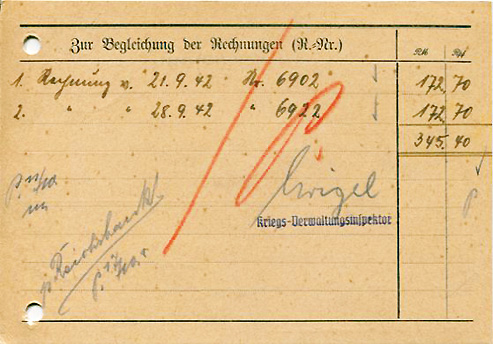 Zur Begleichung der Rechnungen (R.-Nr.)
RM Rpf
1. Rechnung v. 21.9.42 Nr. 6902 172,70
2. " " 28.9.42 " 6922 172,70
345.40
Kriegs-Verwaltungsinspektor
Reichsbank